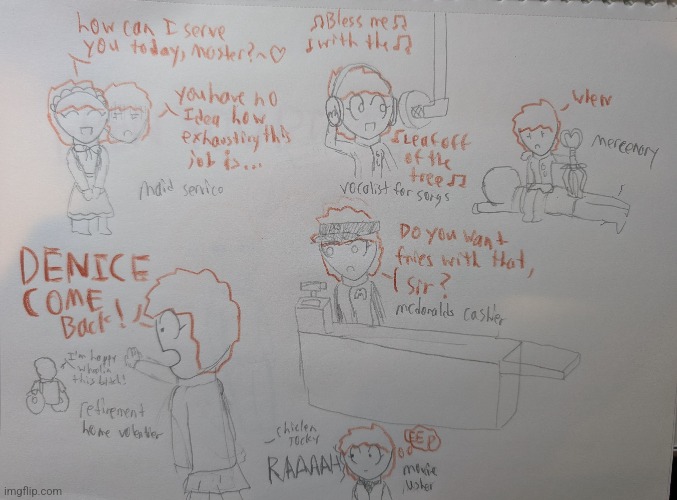 how can I serve
you today, master?~♡
you have no
Idea how
exhausting this
job is...
maid service
♫Bless me♫
♪with the♫
♪Leaf off
of the
tree♫
vocalist for songs
whew
mercenary
DENICE
COME
Back!
I'm hoppy
wheelin
this bitch!
retirement
home volenteer
Do you want
fries with that,
sir?
mcdonalds cashier
chicken
Jocky
RAAAAH
EEP
movie
usher
imgflip.com